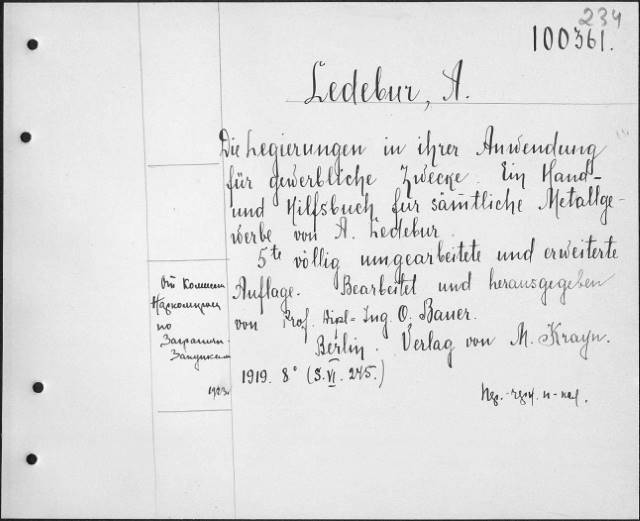 234
100361.
Ledebur, A.
Die Legierungen in ihrer Anwendung
für gewerbliche Zwecke. Ein Hand-
und Hilfsbuch für sämtliche Metallge-
werbe von A. Ledebur.
5te völlig umgearbeitete und erweiterte
Auflage. Bearbeitet und herausgegeben
von Prof. Dipl-Ing. O. Bauer.
Berlin. Verlag von M. Krayn.
1919. 8° (S. VI. 245.)
От Комисси
по
Загранич.
Закупкам
1923.